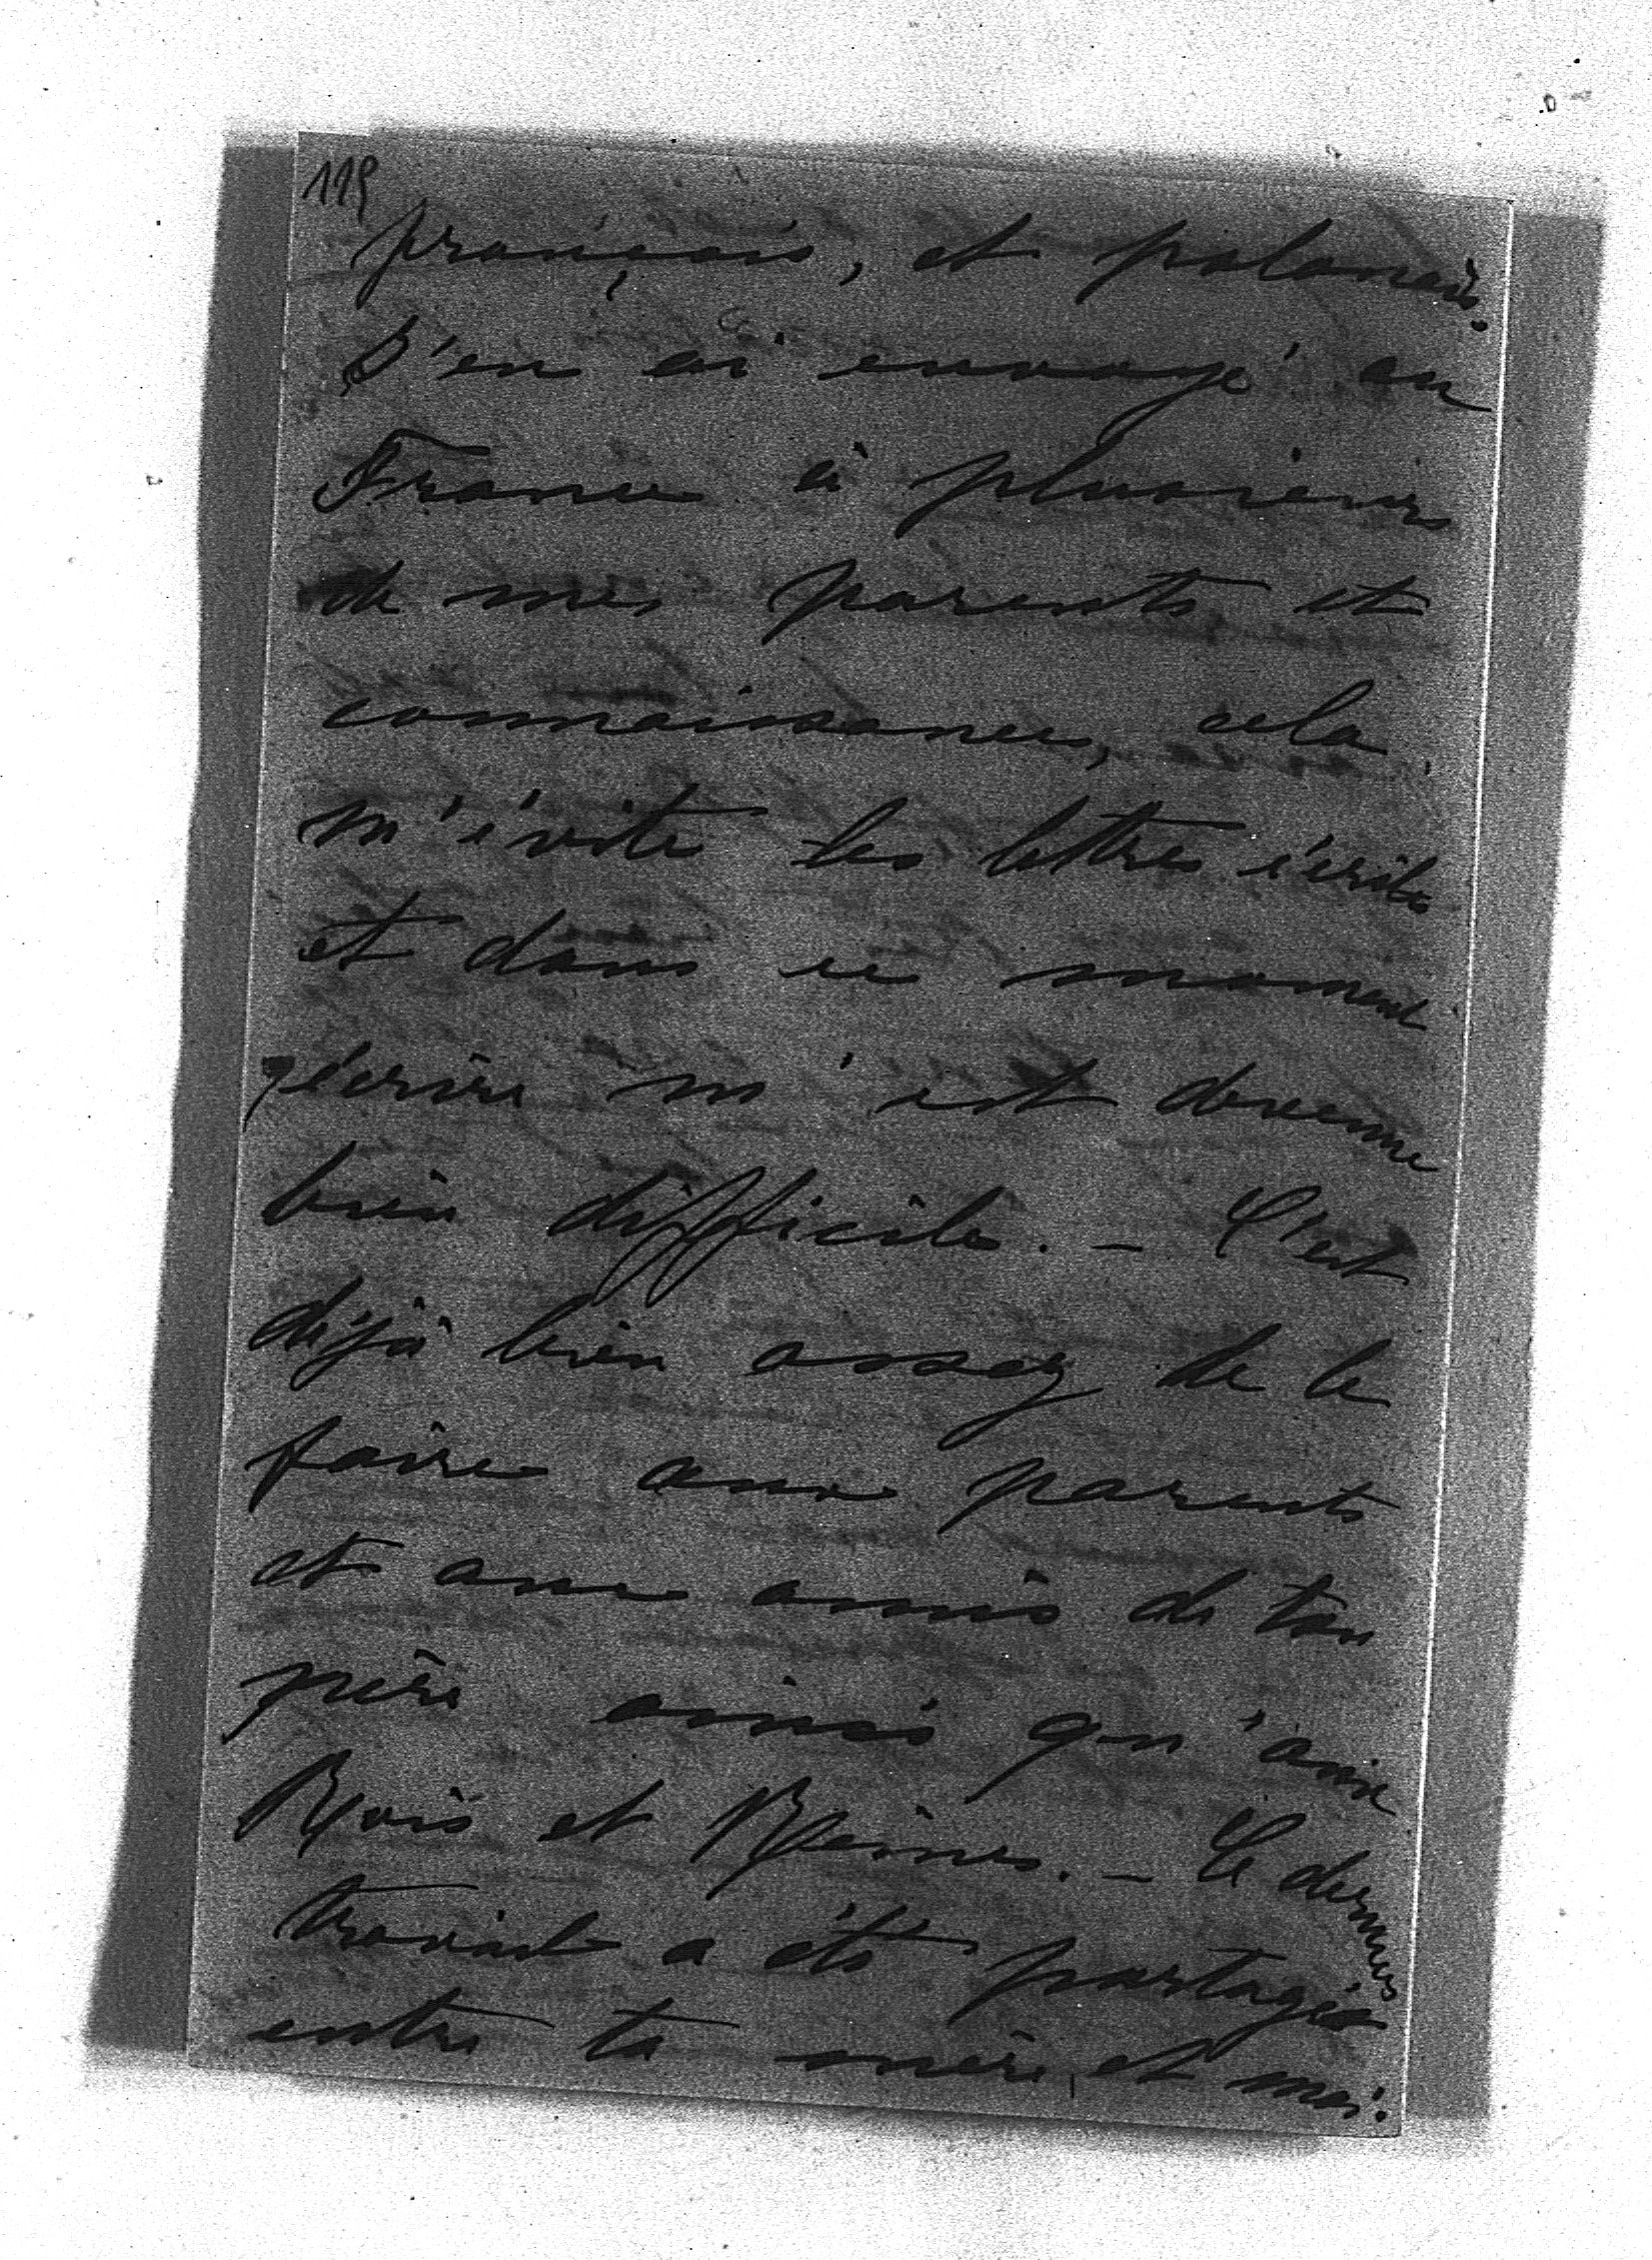 119
français, et polonais.
J'en ai envoyé en
France à plusieurs
de mes parents et
connaissances, cela
m'évite les lettres écrites
et dans ce moment
écrire m'est devenue
bien difficile. – C'est
déjà bien assez de le
faire aux parents
et aux amis de ton
père ainsi qu'aux
Rois et Reines. – Ce dernier
travail a été partagée
entre ta mère et moi.